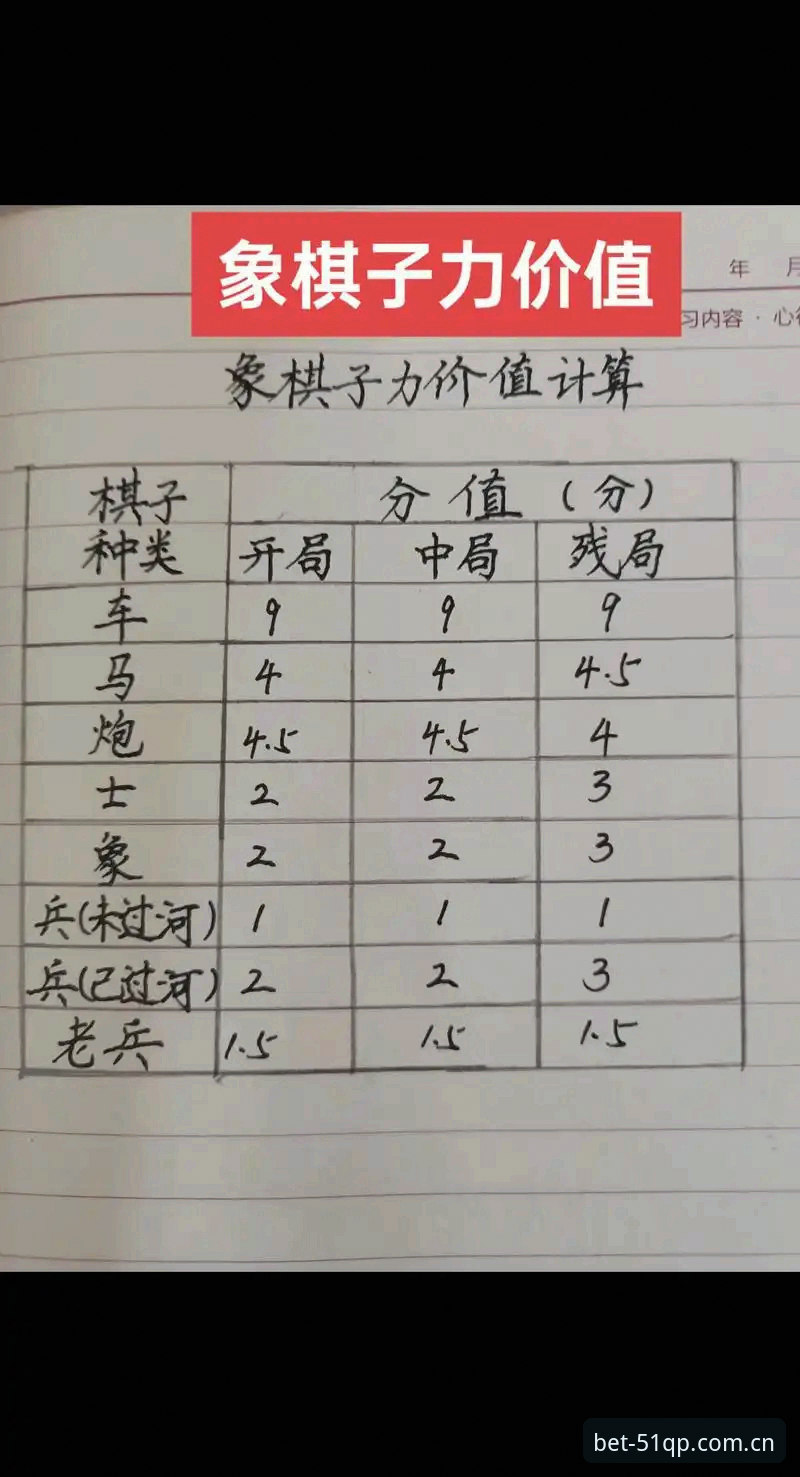 象棋子力价值
年 月
习内容 · 心
象棋子力价值计算
棋子 分值（分）
种类 开局 中局 残局
车 9 9 9
马 4 4 4.5
炮 4.5 4.5 4
士 2 2 3
象 2 2 3
兵(未过河) 1 1 1
兵(已过河) 2 2 3
老兵 1.5 1.5 1.5
bet-51qp.com.cn